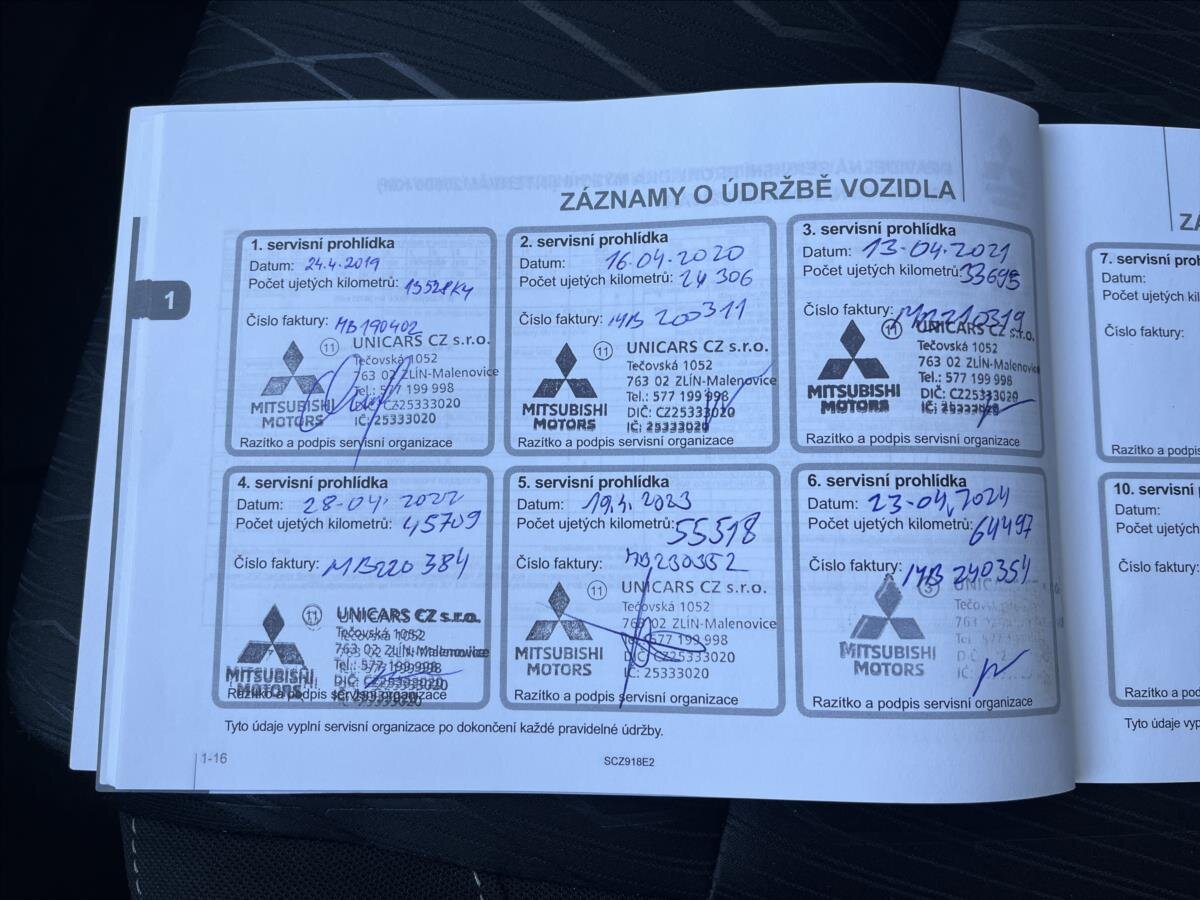 ZÁZNAMY O ÚDRŽBĚ VOZIDLA
1
1. servisní prohlídka
Datum: 24.4.2019
Počet ujetých kilometrů: 13528 KM
Číslo faktury: MB190402
11 UNICARS CZ s.r.o.
Tečovská 1052
763 02 ZLÍN-Malenovice
Tel.: 577 199 998
DIČ: CZ25333020
IČ: 25333020
MITSUBISHI
MOTORS
Razítko a podpis servisní organizace
2. servisní prohlídka
Datum: 16.04.2020
Počet ujetých kilometrů: 24 306
Číslo faktury: MB 200311
11 UNICARS CZ s.r.o.
Tečovská 1052
763 02 ZLÍN-Malenovice
Tel.: 577 199 998
DIČ: CZ25333020
IČ: 25333020
MITSUBISHI
MOTORS
Razítko a podpis servisní organizace
3. servisní prohlídka
Datum: 13-04.2021
Počet ujetých kilometrů: 33695
Číslo faktury: MB210319
11 UNICARS CZ s.r.o.
Tečovská 1052
763 02 ZLÍN-Malenovice
Tel.: 577 199 998
DIČ: CZ25333020
IČ: 25333020
MITSUBISHI
MOTORS
Razítko a podpis servisní organizace
4. servisní prohlídka
Datum: 28-04.2022
Počet ujetých kilometrů: 45709
Číslo faktury: MB220 384
11 UNICARS CZ s.r.o.
Tečovská 1052
763 02 ZLÍN-Malenovice
Tel.: 577 199 998
DIČ: CZ25333020
IČ: 25333020
MITSUBISHI
MOTORS
Razítko a podpis servisní organizace
5. servisní prohlídka
Datum: 19.4.2023
Počet ujetých kilometrů: 55518
Číslo faktury: MB230352
11 UNICARS CZ s.r.o.
Tečovská 1052
763 02 ZLÍN-Malenovice
Tel.: 577 199 998
DIČ: CZ25333020
IČ: 25333020
MITSUBISHI
MOTORS
Razítko a podpis servisní organizace
6. servisní prohlídka
Datum: 23-04.2024
Počet ujetých kilometrů: 64497
Číslo faktury: MB 240354
3 UNIC
Tečo
763 02
Tel
DIČ:
IČ:
MITSUBISHI
MOTORS
Razítko a podpis servisní organizace
Tyto údaje vyplní servisní organizace po dokončení každé pravidelné údržby.
1-16
SCZ918E2
ZÁ
7. servisní proh
Datum:
Počet ujetých kil
Číslo faktury:
Razítko a podpis
10. servisní
Datum:
Počet ujetýc
Číslo faktu
Razítko a
Tyto údaje vy